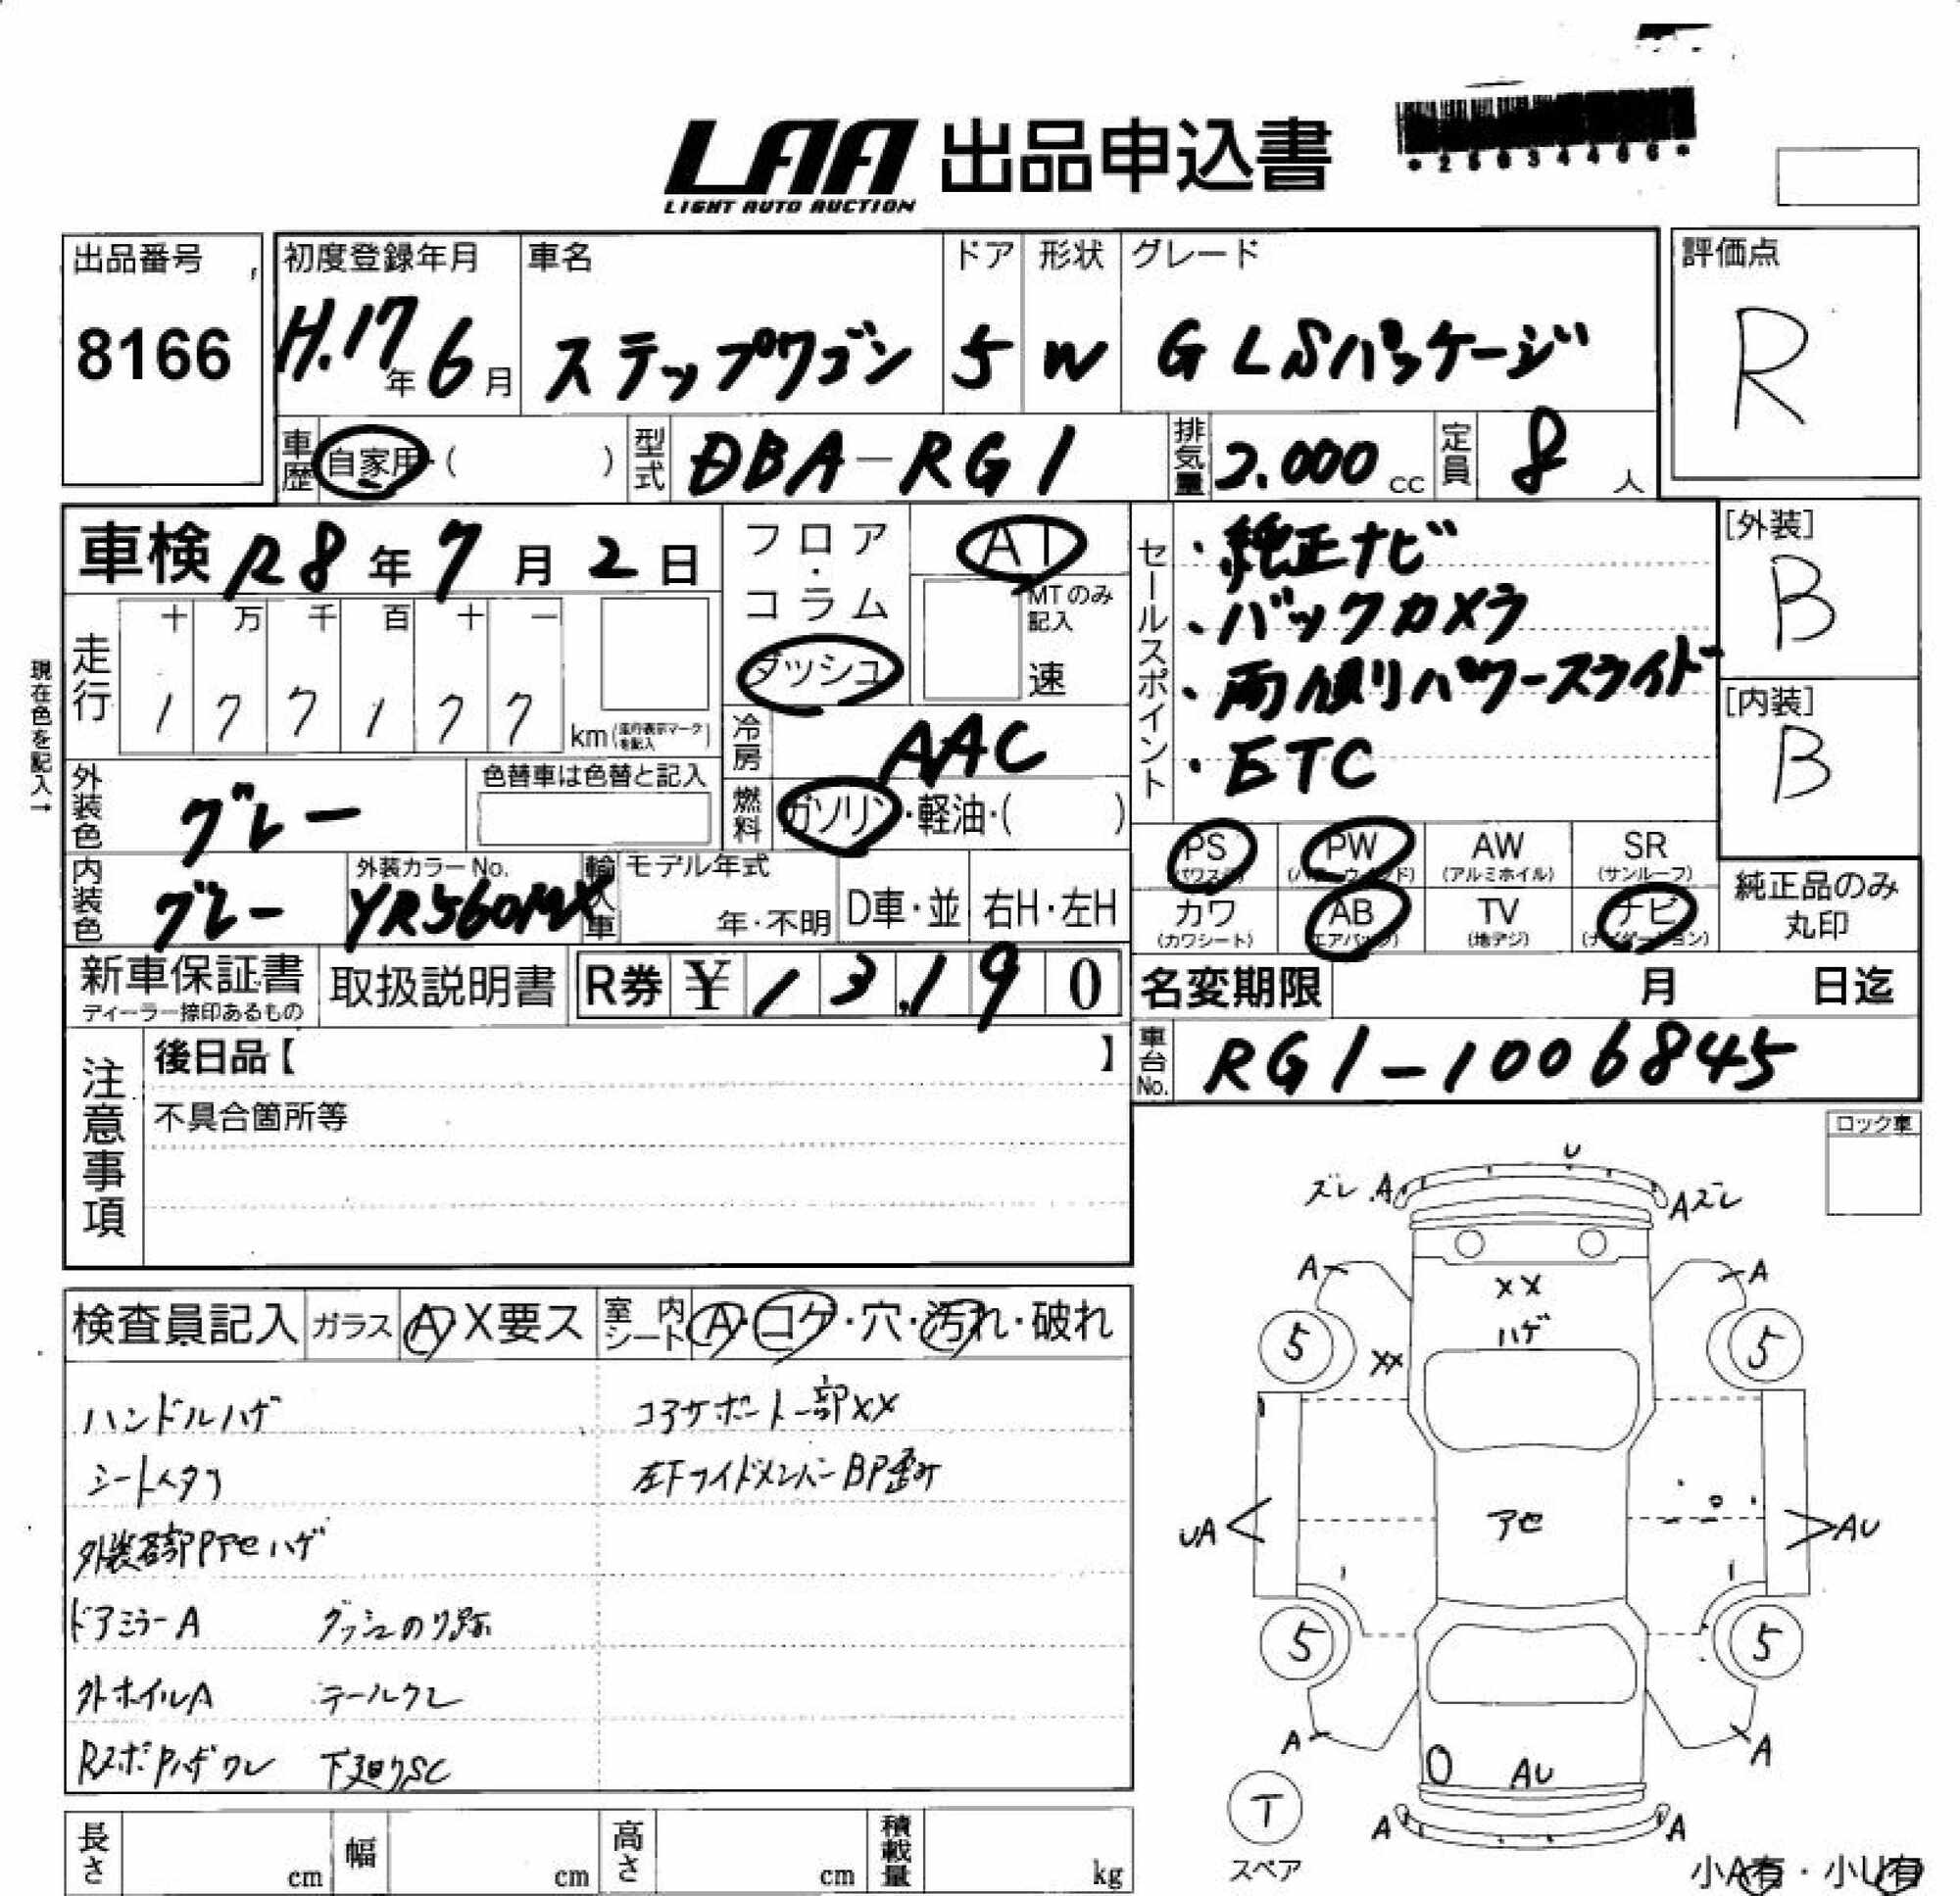 LAA 出品申込書
LIGHT AUTO AUCTION
*25034466*
出品番号
8166
初度登録年月
H.17年6月
車名
ステップワゴン
ドア
5
形状
W
グレード
G LSパッケージ
評価点
R
車歴 自家用・( )
型式 DBA-RG1
排気量 2.000 cc
定員 8人
車検 R8年7月2日
フロア・コラム
ダッシュ
AT
MTのみ記入
速
セールスポイント
・純正ナビ
・バックカメラ
・両側パワースライド
・ETC
[外装]
B
[内装]
B
現在色を記入→
走行
十 万 千 百 十 一
1 7 7 1 7 7
km(走行表示マークを記入)
冷房 AAC
燃料 ガソリン・軽油・( )
外装色 グレー
色替車は色替と記入
内装色 グレー
外装カラーNo.
YR560MX
輸入車
モデル年式
年・不明
D車・並
右H・左H
PS (パワステ)
PW (パワーウィンド)
AW (アルミホイル)
SR (サンルーフ)
カワ (カワシート)
AB (エアバック)
TV (地デジ)
ナビ (ナビゲーション)
純正品のみ丸印
新車保証書
ディーラー捺印あるもの
取扱説明書
R券 ¥ 13,190
名変期限 月 日迄
車台No. RG1-1006845
注意事項
後日品【 】
不具合箇所等
ロック車
検査員記入
ガラス A X要ス
室内シート A・コゲ・穴・汚れ・破れ
ハンドルハゲ
コアサポート一部XX
シートヘタリ
左Fサイドメンバー BP歪み
外装各部Pアセハゲ
ドアミラーA
ダッシュのり跡
外ホイルA
テールワレ
RスポPハゲワレ
下廻りSC
U
ズレ A
Aズレ
A
A
XX
ハゲ
5
XX
5
UA
アセ
AU
5
5
A
A
AU
T
スペア
A
A
小A有・小U有
長さ cm
幅 cm
高さ cm
積載量 kg